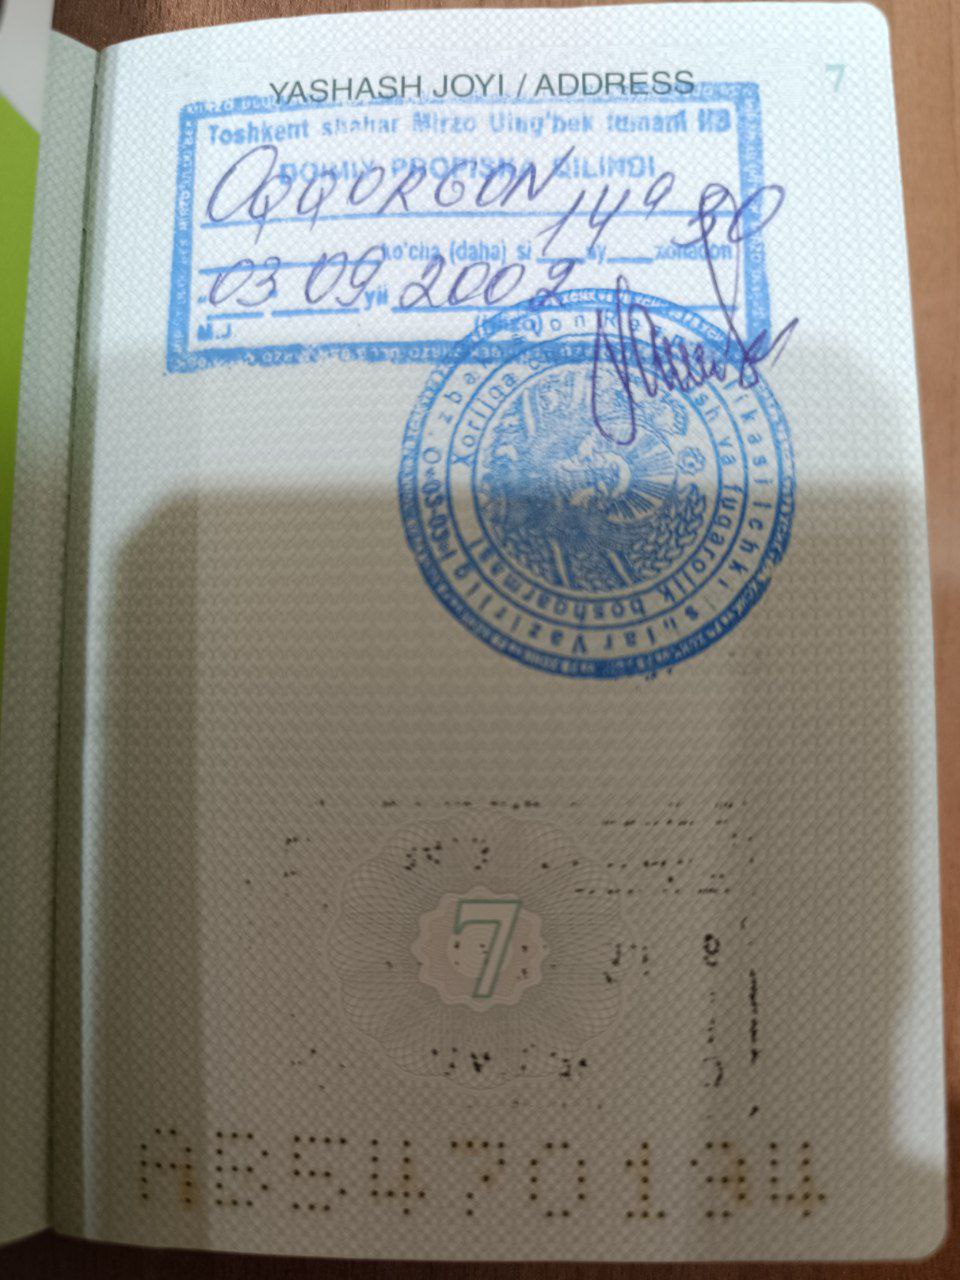 7
YASHASH JOYI / ADDRESS
Toshkent shahar Mirzo Ulug'bek tumani IIB
DOIMIY PROPISKA QILINDI
OQQORGON 14a 30
ko'cha (daha) si uy xonadon
03 09 yil 2002
M.J (imzo)
O'zbekiston Respublikasi Ichki ishlar Vazirligi
Xorijga chiqish va fuqarolik boshqarmasi
7
AB5470134